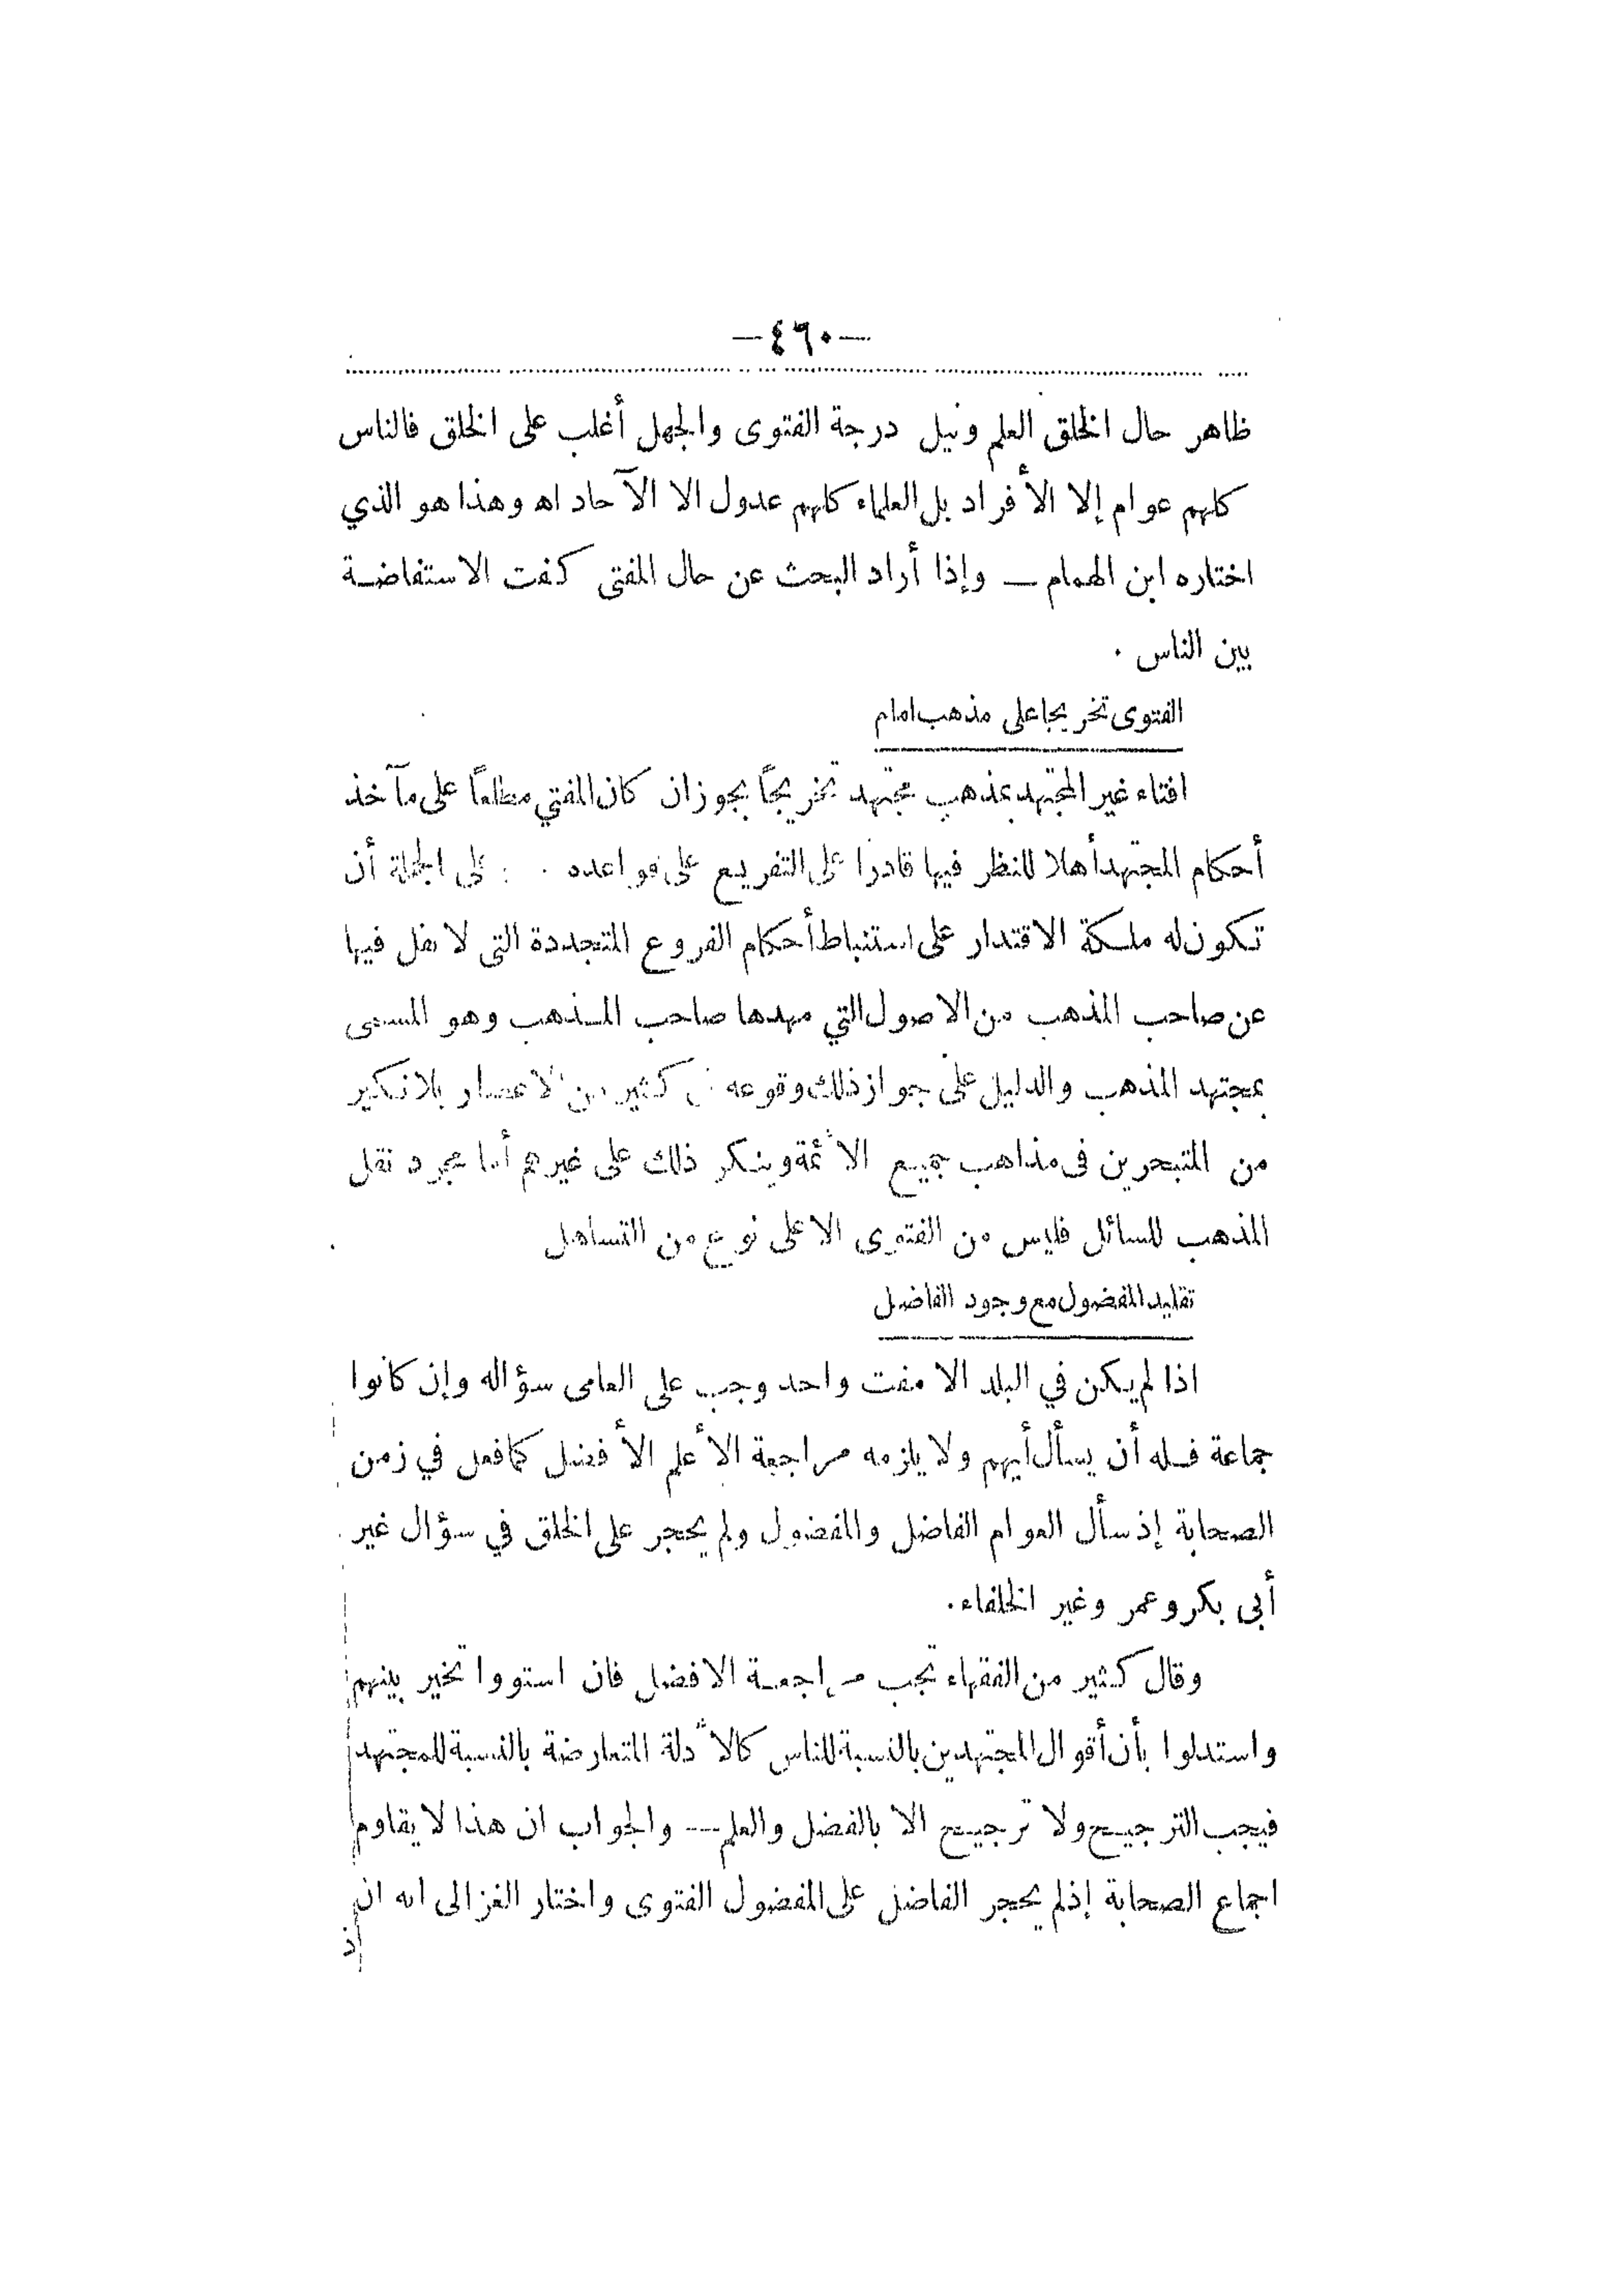 —٤٦٠—
ظاهر حال الخلق العلم ونيل درجة الفتوى والجهل أغلب على الخلق فالناس
كلهم عوام إلا الأفراد بل العلماء كلهم عدول الا الآحاد اه وهذا هو الذي
اختاره ابن الهمام — وإذا أراد البحث عن حال المفتى كفت الاستفاضة
بين الناس .
الفتوى تخريجا على مذهب امام
افتاء غير المجتهد بمذهب مجتهد تخريجاً يجوز ان كان المفتي مطلعاً على مآخذ
أحكام المجتهد أهلا للنظر فيها قادرا على التفريع على قواعده على الجملة أن
تكون له ملكة الاقتدار على استنباط أحكام الفروع المتجددة التى لا نقل فيها
عن صاحب المذهب من الاصول التي مهدها صاحب المذهب وهو المسمى
بمجتهد المذهب والدليل على جواز ذلك وقوعه كثير من الاعصار بلا نكير
من المتبحرين فى مذاهب جميع الأئمة وينكر ذلك على غيرهم أما مجرد نقل
المذهب للسائل فليس من الفتوى الا على نوع من التساهل
تقليد المفضول مع وجود الفاضل
اذا لم يكن في البلد الا مفت واحد وجب على العامى سؤاله وإن كانوا
جماعة فله أن يسأل أيهم ولا يلزمه مراجعة الأعلم الأفضل كما فعل في زمن
الصحابة إذ سأل العوام الفاضل والمفضول ولم يحجر على الخلق في سؤال غير
أبى بكر وعمر وغير الخلفاء.
وقال كثير من الفقهاء تجب مراجعة الافضل فان استووا تخير بينهم
واستدلوا بأن أقوال المجتهدين بالنسبة للناس كالأدلة المتعارضة بالنسبة للمجتهد
فيجب الترجيح ولا ترجيح الا بالفضل والعلم — والجواب ان هذا لا يقاوم
اجماع الصحابة إذ لم يحجر الفاضل على المفضول الفتوى واختار الغزالى انه ان